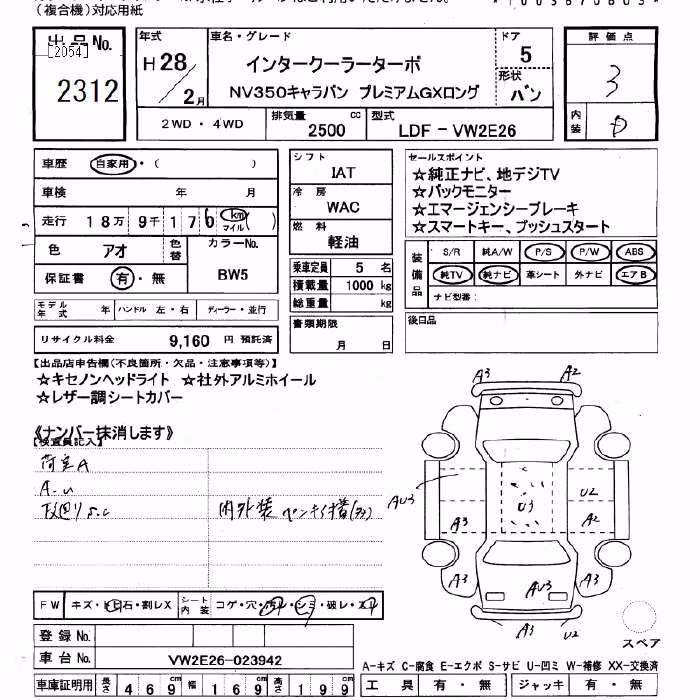 （複合機）対応用紙
出品No.
[2054]
2312
年式
H28
2月
車名・グレード
インタークーラーターボ
NV350キャラバン プレミアムGXロング
ドア
5
形状
バン
評価点
3
内装
D
2WD・4WD
排気量
2500
cc
型式
LDF－VW2E26
車歴
自家用・（　　）
車検
年　月
走行
18万9千176
km
マイル
色
アオ
色替
カラーNo.
BW5
保証書
有・無
モデル年式
年
ハンドル 左・右
ディーラー・並行
リサイクル料金
9,160
円 預託済
シフト
IAT
冷房
WAC
燃料
軽油
乗車定員 5 名
積載量 1000 kg
総重量 kg
書類期限
月　日
セールスポイント
☆純正ナビ、地デジTV
☆バックモニター
☆エマージェンシーブレーキ
☆スマートキー、プッシュスタート
装備品
S/R 純A/W P/S P/W ABS
純TV 純ナビ 革シート 外ナビ エアB
ナビ型番：
後日品
【出品店申告欄(不良箇所・欠品・注意事項等)】
☆キセノンヘッドライト ☆社外アルミホイール
☆レザー調シートカバー
《ナンバー抹消します》
【検査員記入】
荷室A
A.U
下廻りS.C
内外装
A3 A2
AU3
U3
U2
A3
A2
A3
AU3
A3
A3
U2
スペア
FW
キズ・トビ石・割レX
シート内装
コゲ・穴・汚レ・シミ・破レ・スレ
登録No.
車台No.
VW2E26-023942
車庫証明用
長さ 469 cm
幅 169 cm
高さ 199 cm
A－キズ C－腐食 E－エクボ S－サビ U－凹ミ W－補修 XX－交換済
工具 有・無
ジャッキ 有・無